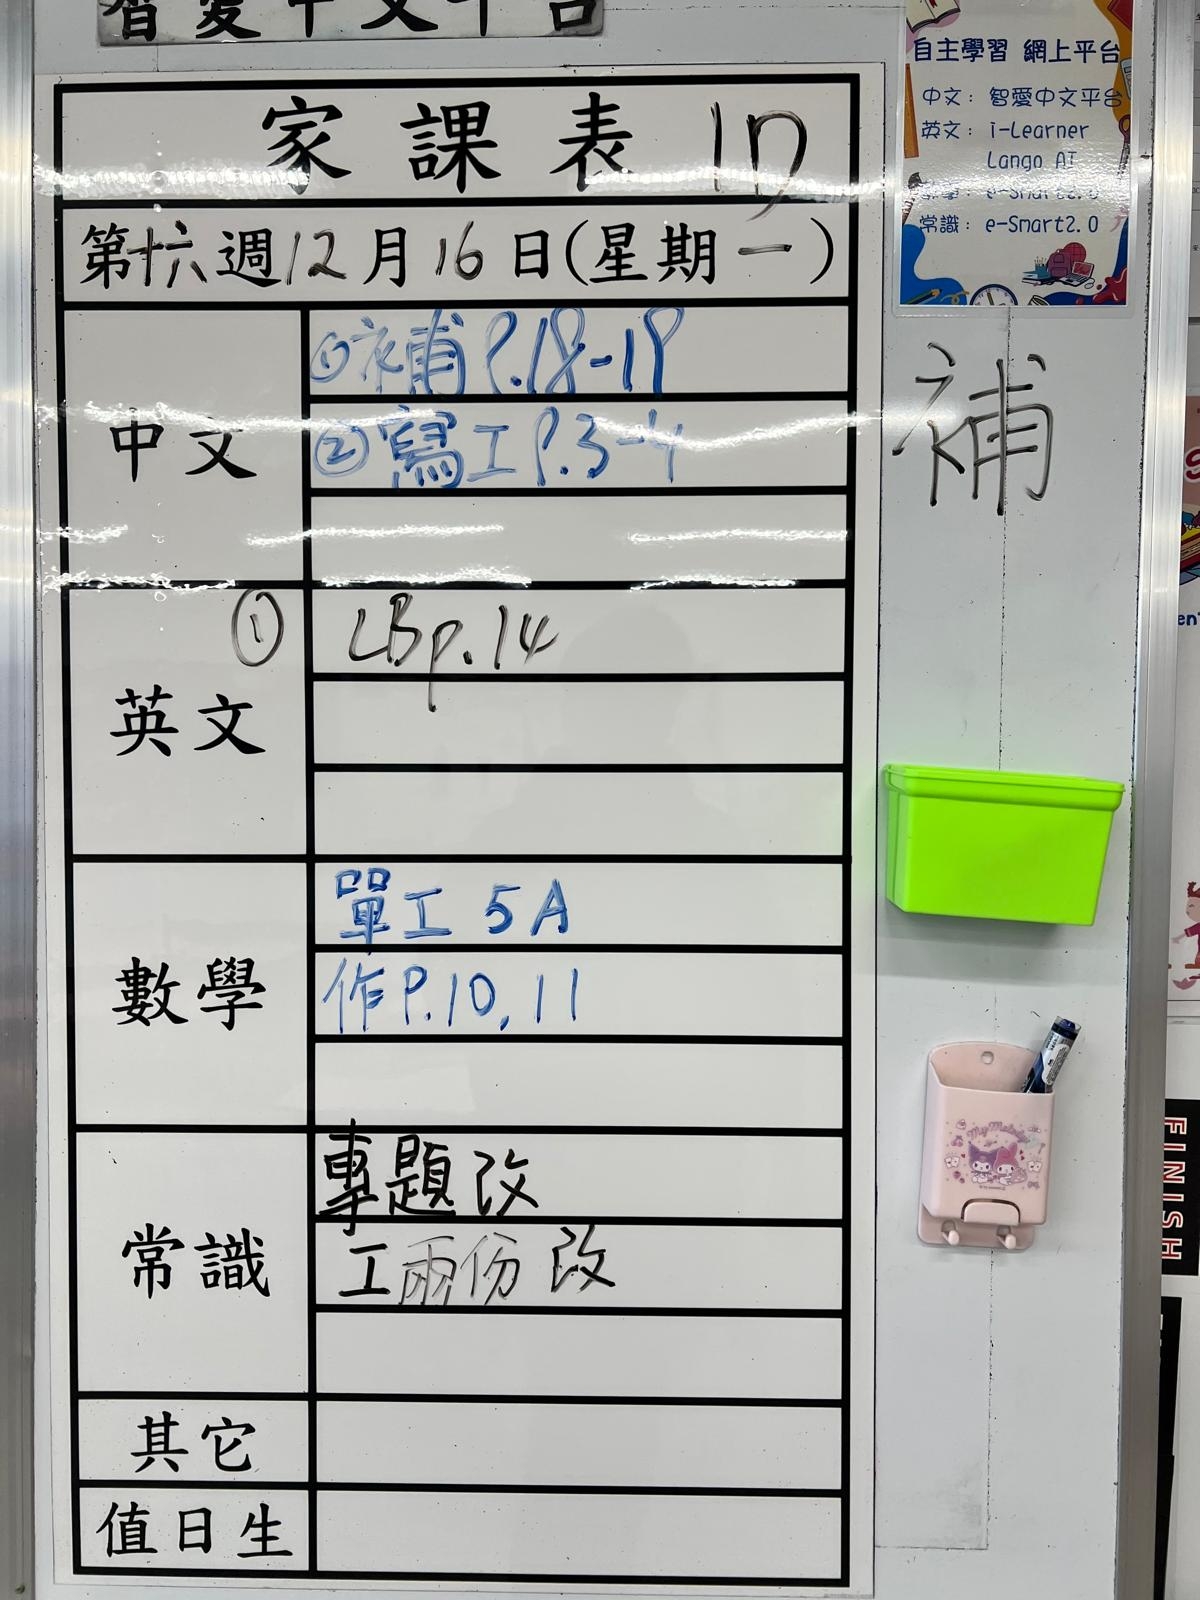 智愛中文平台
家課表 1D
第十六週12月16日(星期一)
中文
①補P.18-19
②寫工P.3-4
英文
① LBp.14
數學
單工5A
作P.10,11
常識
專題改
工兩份改
其它
值日生
自主學習 網上平台
中文：智愛中文平台
英文：i-Learner
Lango AI
數學：e-Smart2.0
常識：e-Smart2.0
補
My Melody
FINISH